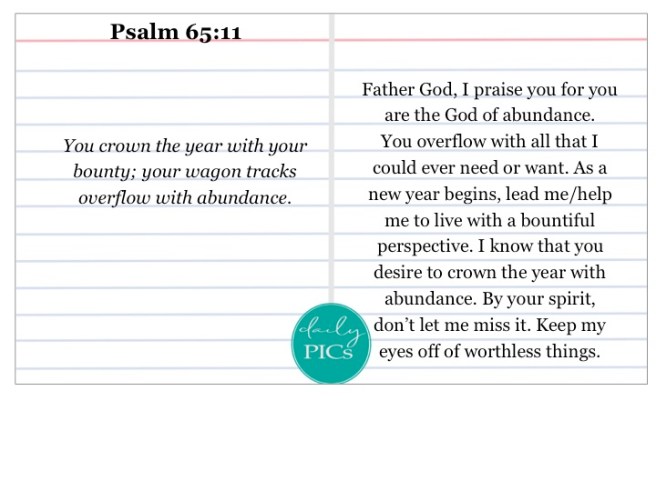 Psalm 65:11
You crown the year with your
bounty; your wagon tracks
overflow with abundance.
Father God, I praise you for you
are the God of abundance.
You overflow with all that I
could ever need or want. As a
new year begins, lead me/help
me to live with a bountiful
perspective. I know that you
desire to crown the year with
abundance. By your spirit,
don’t let me miss it. Keep my
eyes off of worthless things.
daily
PICs